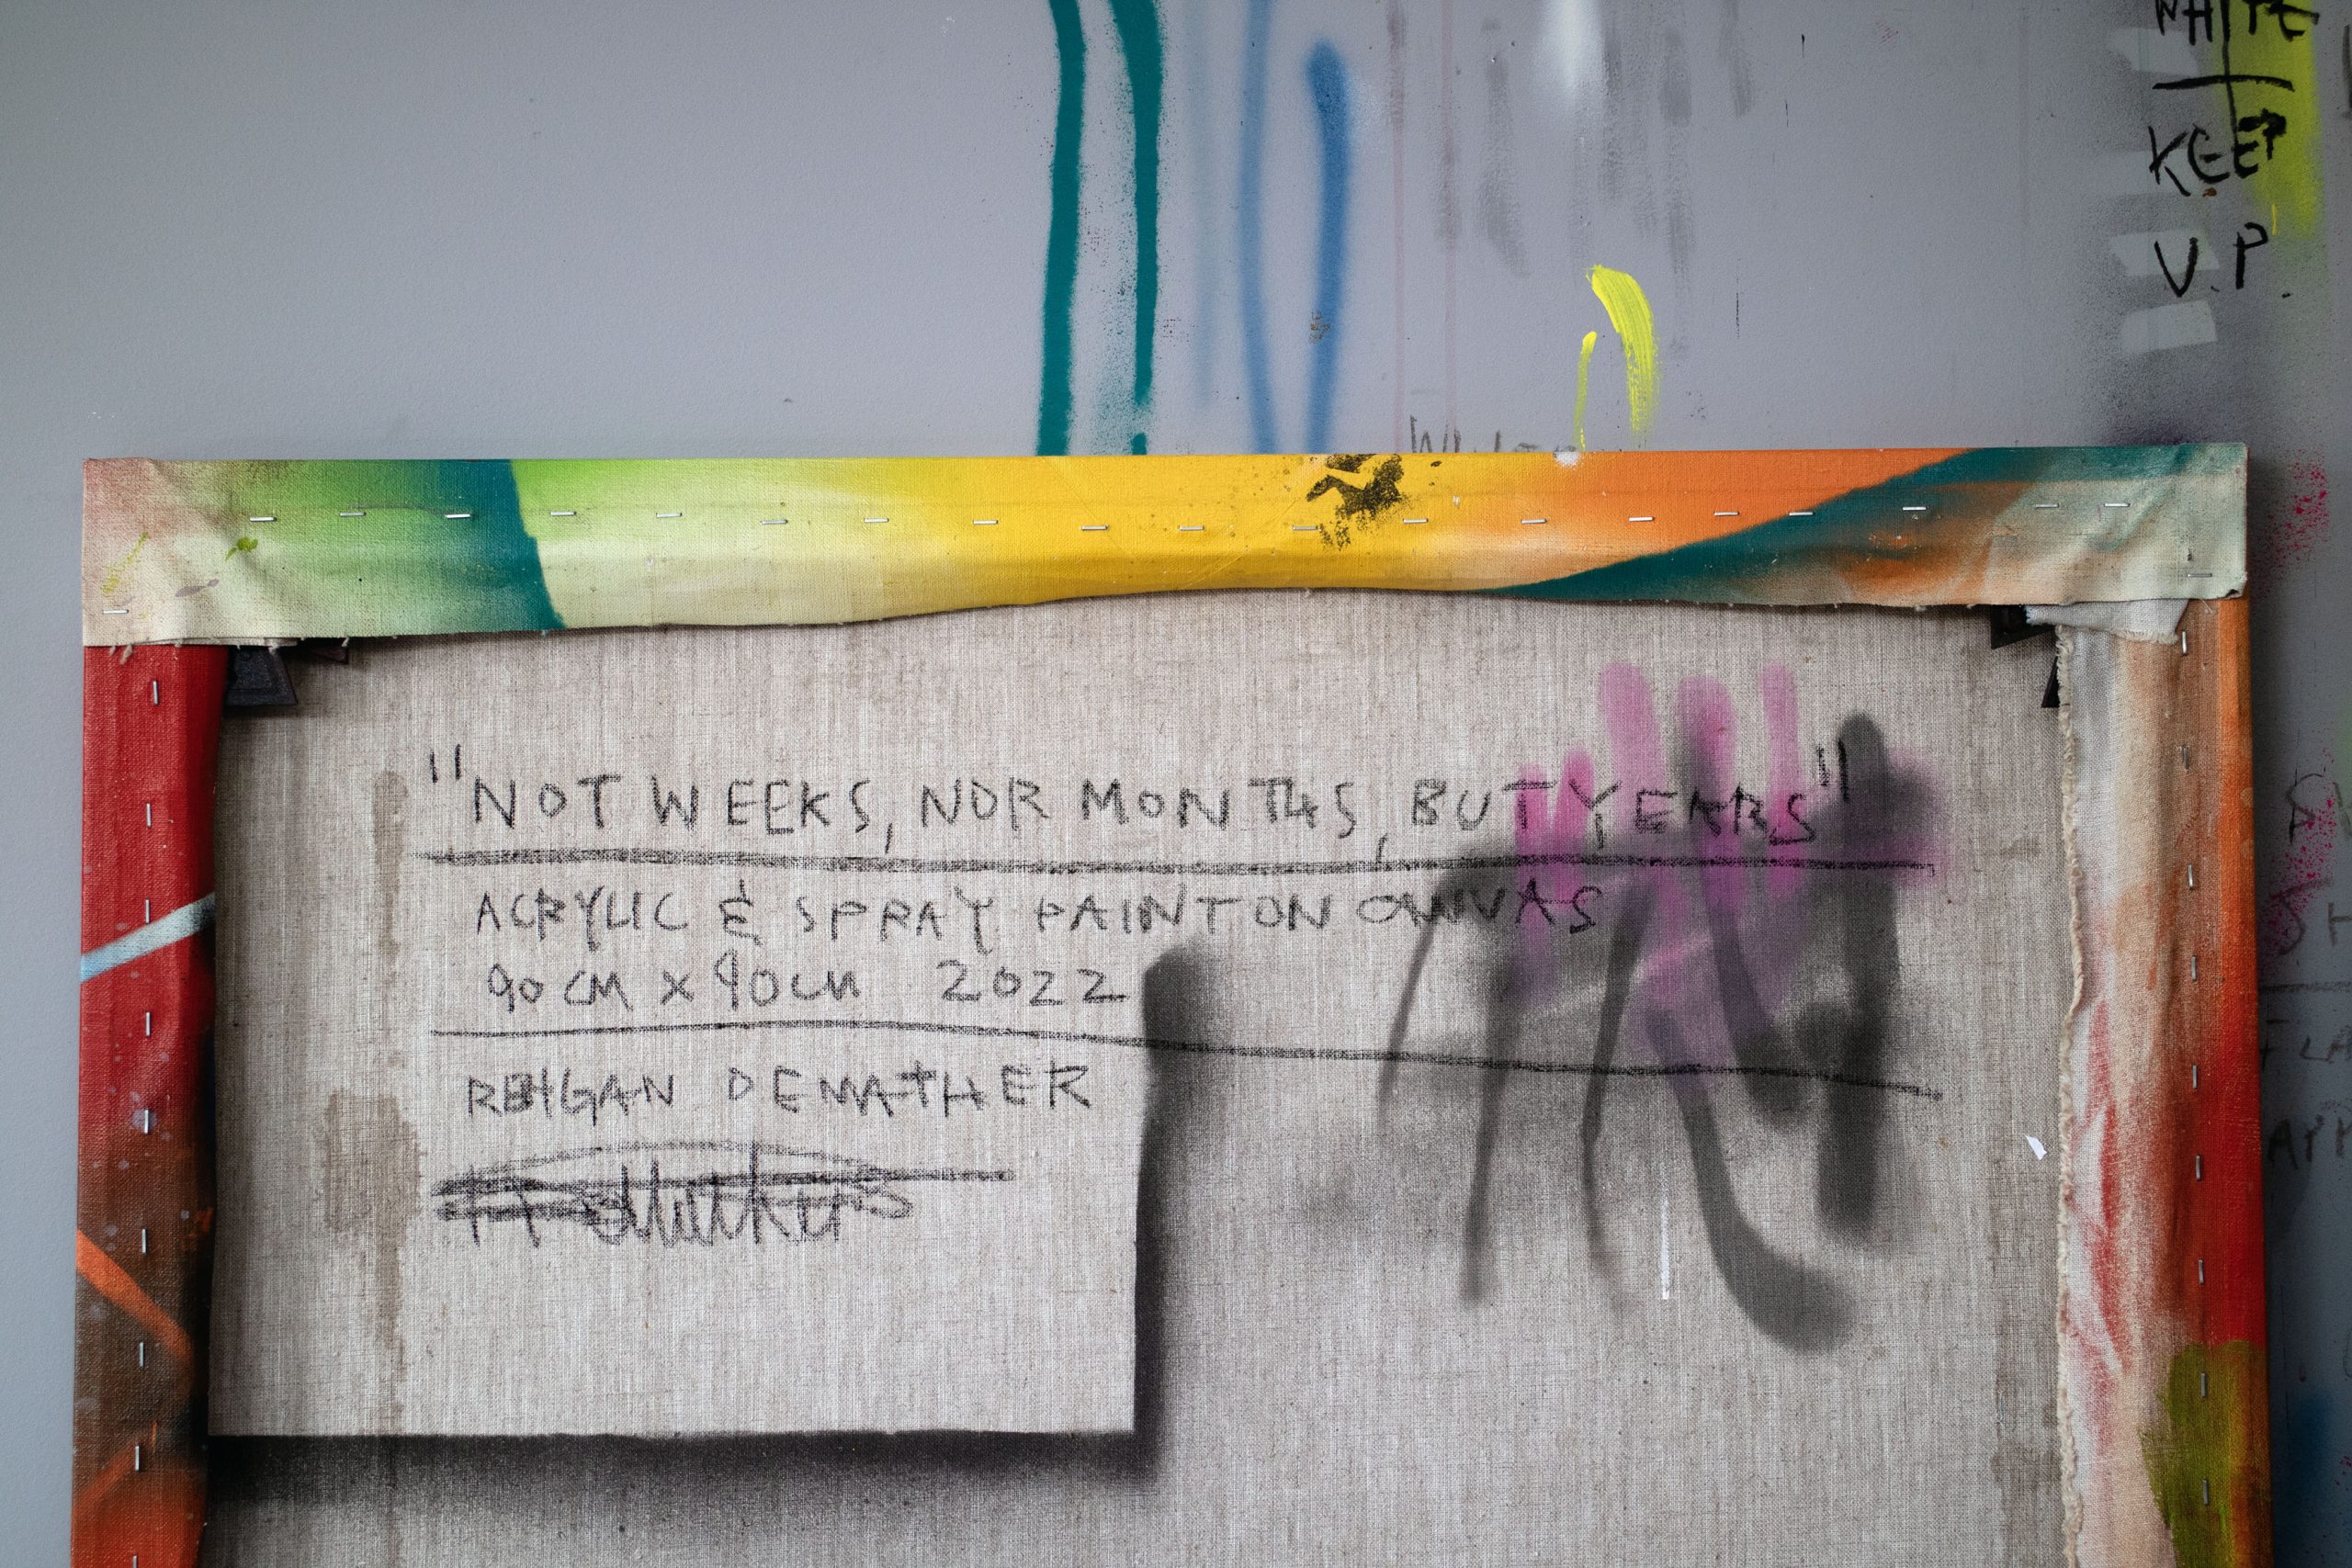 WHITE
KEEP
U.P.
"NOT WEEKS, NOR MONTHS, BUT YEARS"
ACRYLIC & SPRAY PAINT ON CANVAS
90CM x 90CM 2022
REHGAN DEMATHER